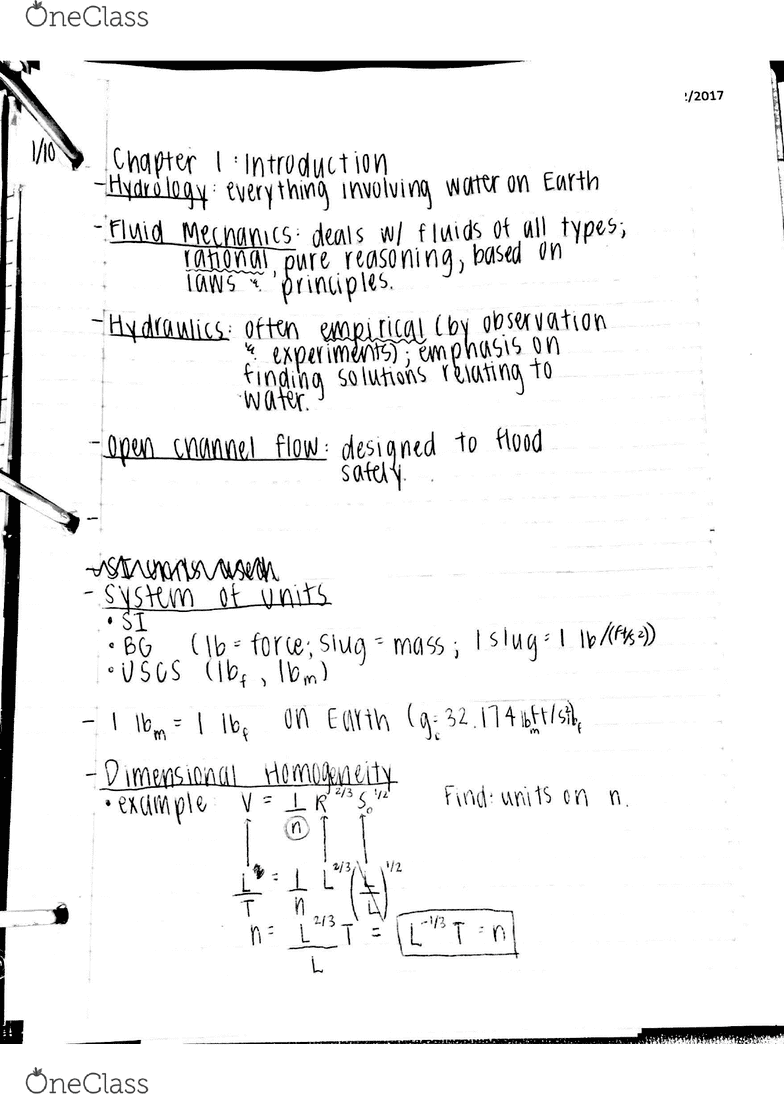 OneClass
:/2017
1/10
Chapter 1: Introduction
- Hydrology: everything involving water on Earth
- Fluid Mechanics: deals w/ fluids of all types;
rational, pure reasoning, based on
laws & principles.
- Hydraulics: often empirical (by observation
& experiments); emphasis on
finding solutions relating to
water.
- Open channel flow: designed to flood
safely.
-
- System of units
• SI
• BG (lb = force; slug = mass; 1 slug = 1 lb/(ft/s2))
• USCS (lbf, lbm)
- 1 lbm = 1 lbf on Earth (gc = 32.174 lbm ft/s2 lbf
- Dimensional Homogeneity
• example V = 1/n R^2/3 So^1/2 Find: units on n.
L/T = 1/n L^2/3 (L/L)^1/2
n = L^2/3/L T = L^-1/3 T = n
OneClass